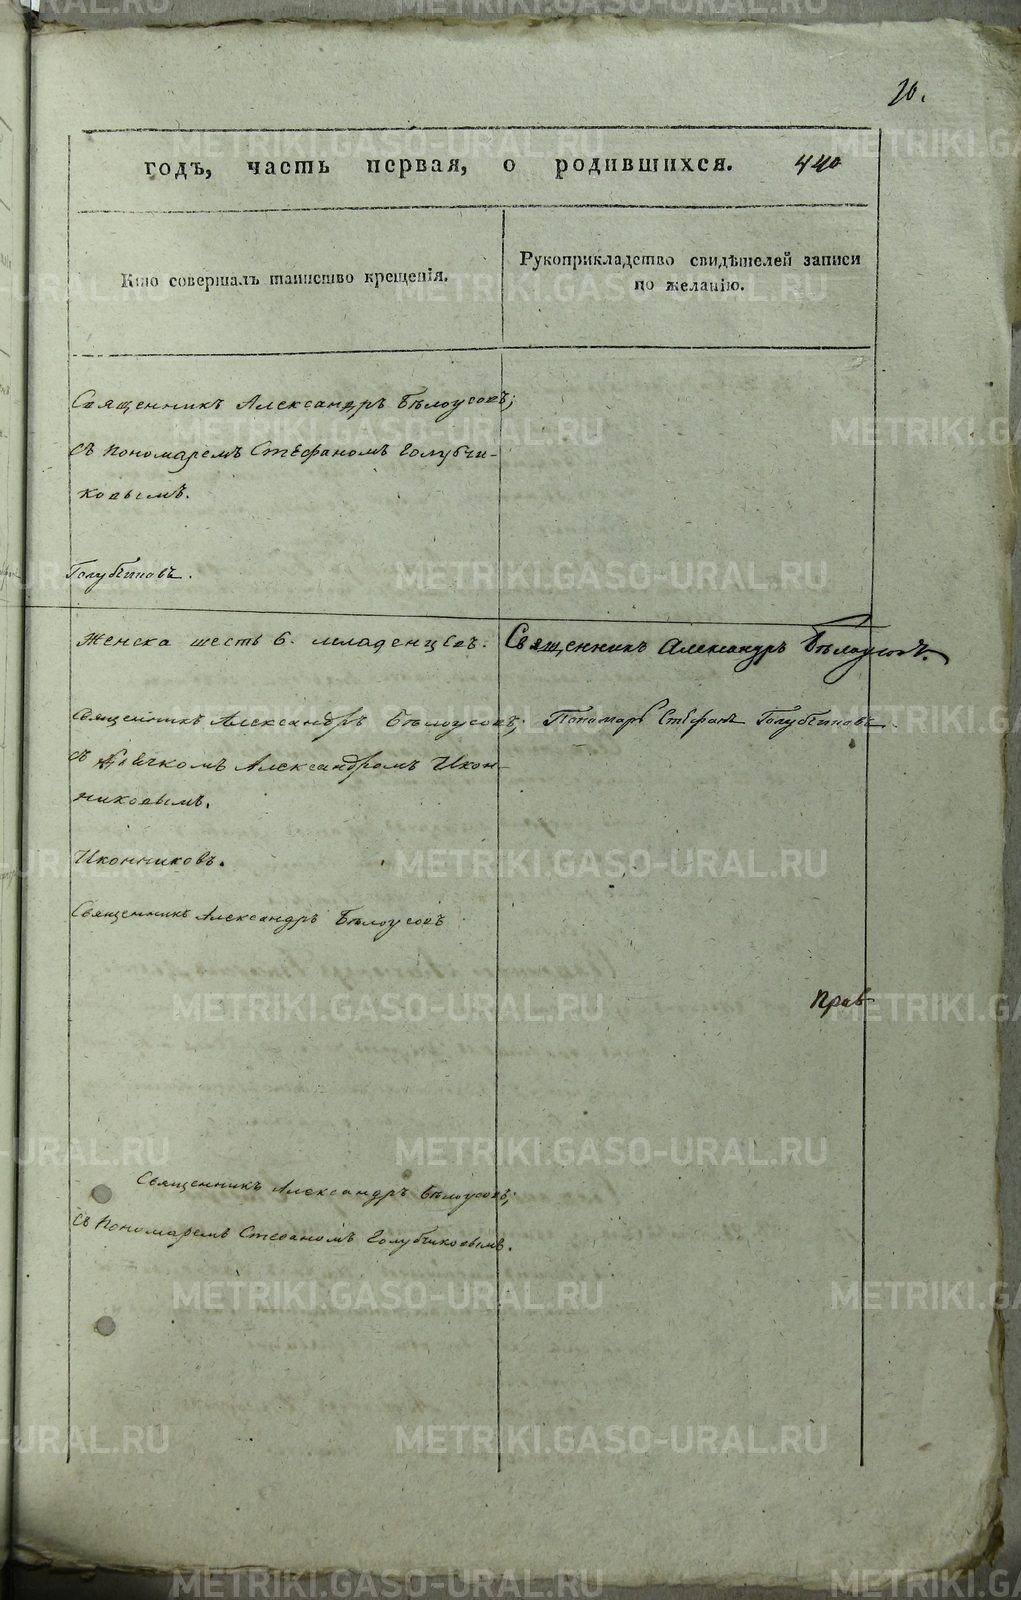 годъ, часть первая, о родившихся. 440
Кто совершалъ таинство крещенія.
Рукоприкладство свидѣтелей записи
по желанію.
Священникъ Александръ Бѣлоусовъ;
съ пономаремъ Стефаномъ Голубчи-
ковымъ.
Голубчиковъ.
Женска шесть 6. младенцевъ.
Священникъ Александръ Бѣлоусовъ.
Священникъ Александръ Бѣлоусовъ;
Пономарь Стефанъ Голубчиковъ
съ Александромъ Икон-
никовымъ.
Иконниковъ.
Священникъ Александръ Бѣлоусовъ
Прав
Священникъ Александръ Бѣлоусовъ;
съ пономаремъ Стефаномъ Голубчиковымъ.
METRIKI.GASO-URAL.RU